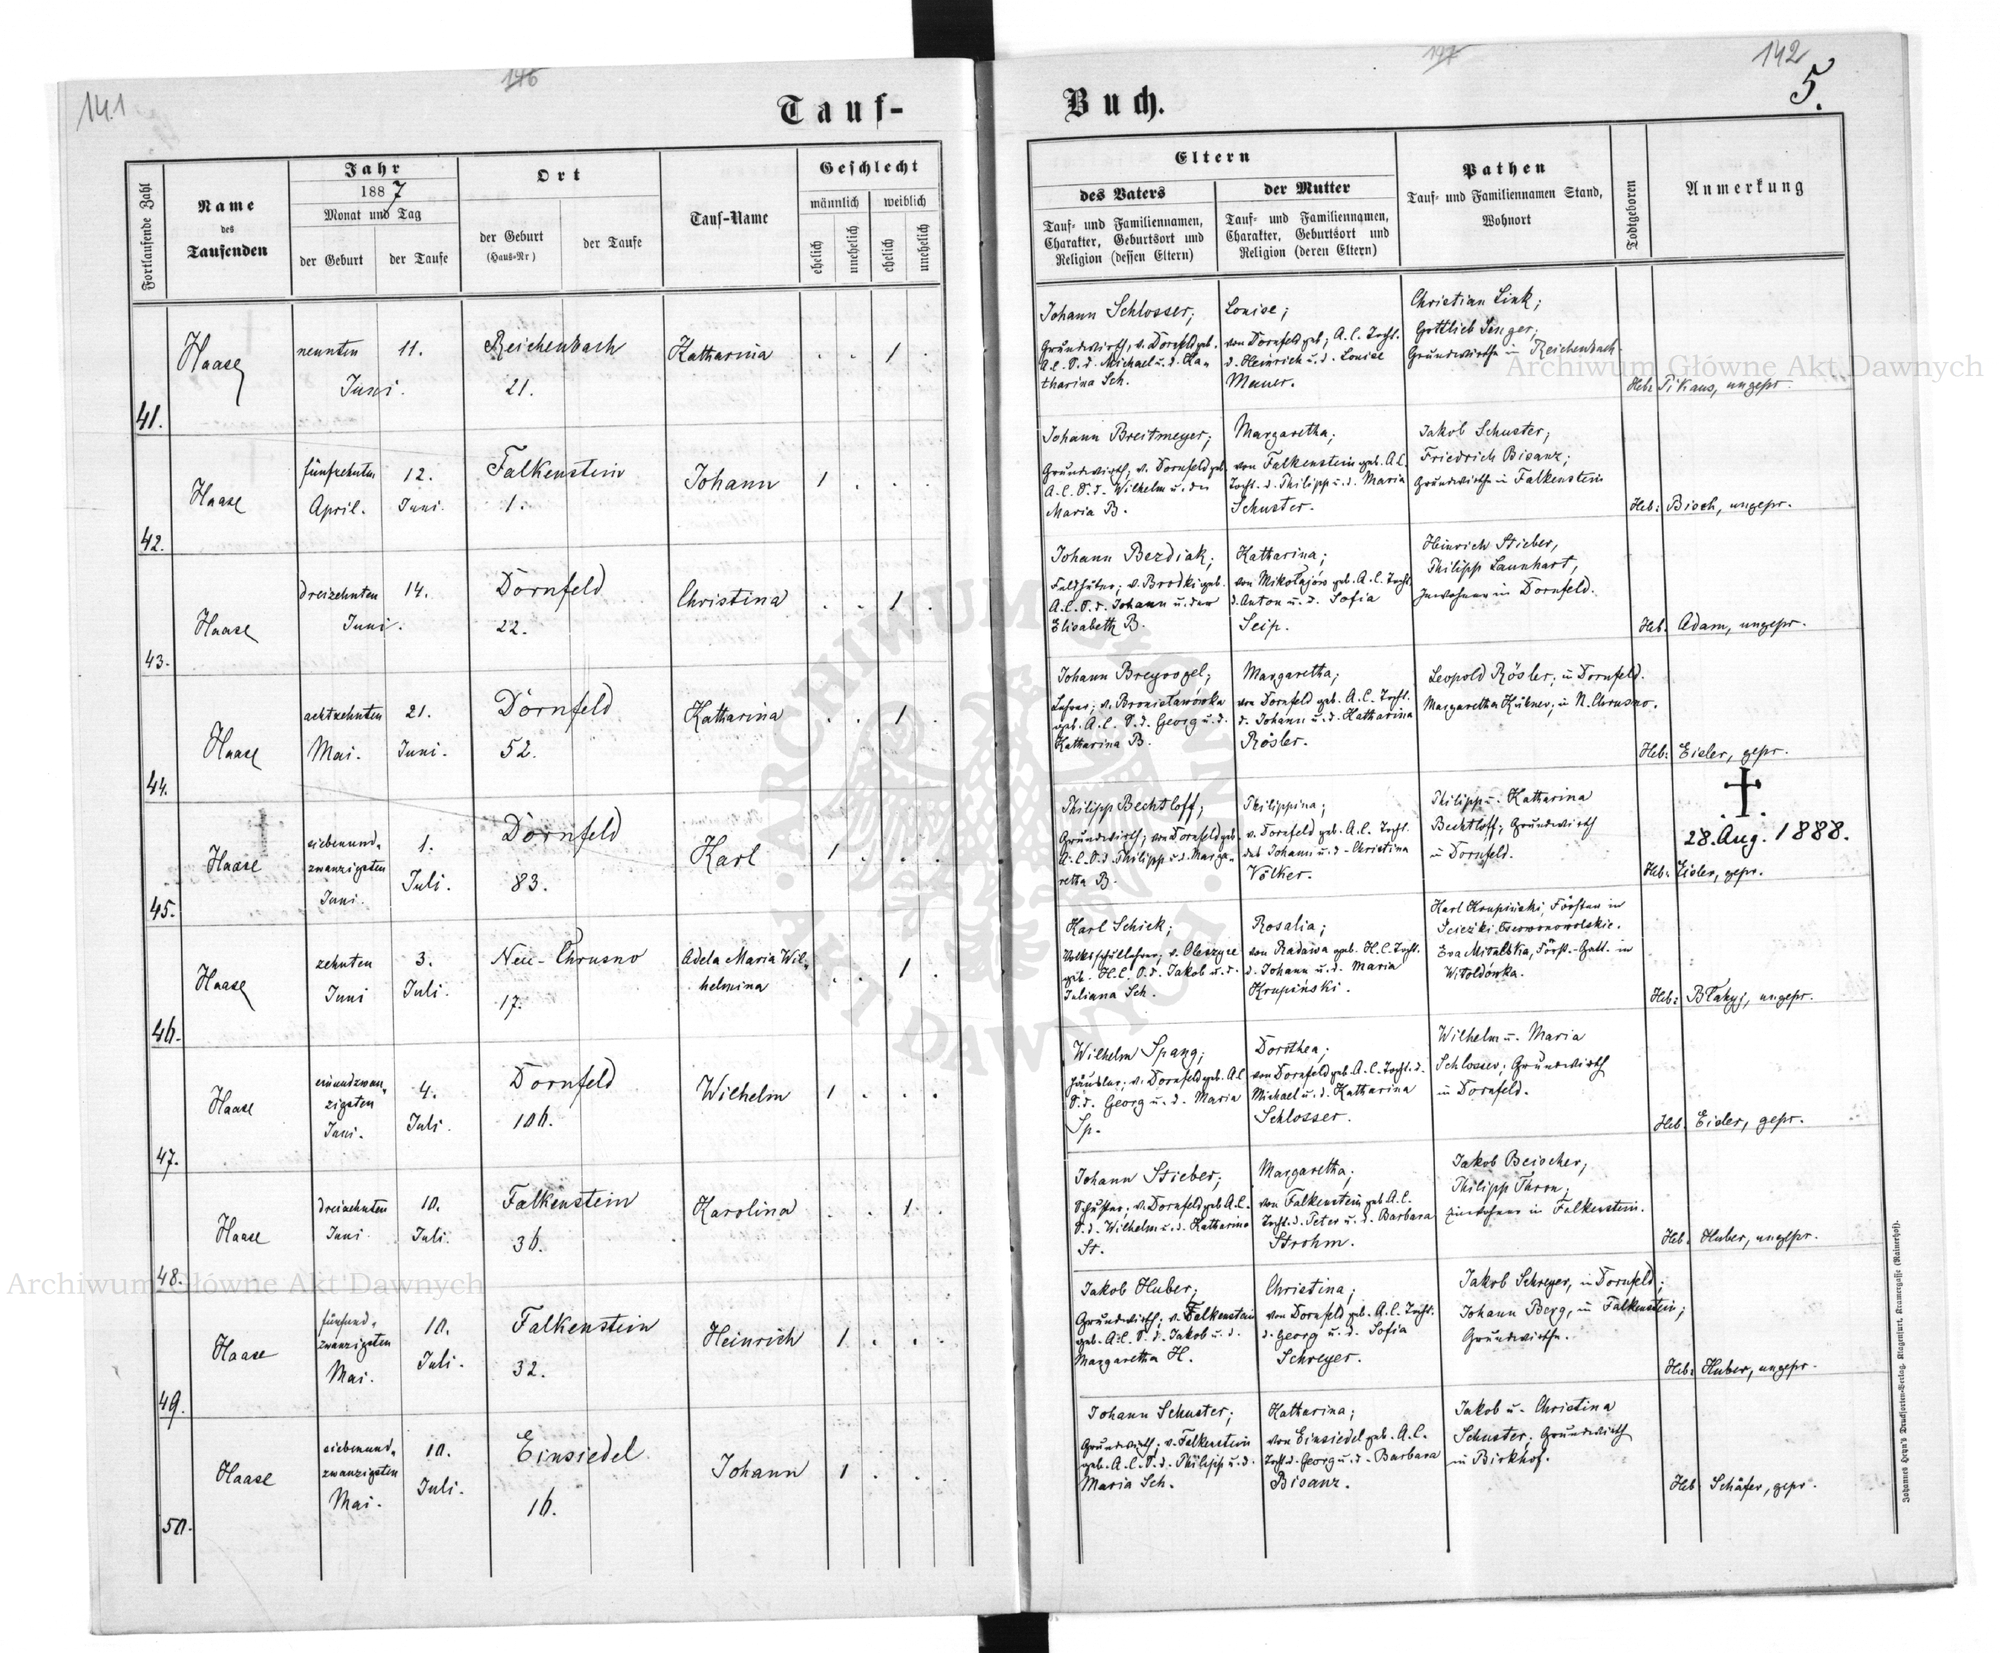 141
146
147
142
5.
Tauf-
Buch.
Fortlaufende Zahl
Name
des
Taufenden
Jahr
1887
Monat und Tag
der Geburt
der Taufe
Ort
der Geburt
(Haus-Nr)
der Taufe
Tauf-Name
Geschlecht
männlich
weiblich
ehelich
unehelich
ehelich
unehelich
Eltern
des Vaters
Tauf- und Familiennamen,
Charakter, Geburtsort und
Religion (dessen Eltern)
der Mutter
Tauf- und Familiennamen,
Charakter, Geburtsort und
Religion (deren Eltern)
Pathen
Tauf- und Familiennamen Stand,
Wohnort
Todtgeboren
Anmerkung
41.
Haase
neunten
Juni.
11.
Reichenbach
21.
Katharina
. . 1 .
Johann Schlosser;
Grundwirth; v. Dornfeld geb.
A.C. S. d. Michael u. d. Ka-
tharina Sch.
Louise;
von Dornfeld geb; A.C. Tocht.
d. Heinrich u. d. Louise
Christian Link;
Gottlieb Senger;
Grundwirthe in Reichenbach.
Heb: Pikaus, ungepr.
42.
Haase
fünfzehnten
April.
12.
Juni.
Falkenstein
1.
Johann
1 . . .
Johann Breitmeyer;
Grundwirth; v. Dornfeld geb.
A.C. S. d. Wilhelm u. der
Maria B.
Margaretha;
von Falkenstein geb. A.C.
Tocht. d. Philipp u. d. Maria
Schuster.
Jakob Schuster;
Friedrich Bisanz;
Grundwirthe in Falkenstein
Heb: Bisch, ungepr.
43.
Haase
dreizehnten
Juni.
14.
Dornfeld
22.
Christina
. . 1 .
Johann Bezdiak;
Feldhüter; v. Brodki geb.
A.C. S. d. Johann u. der
Elisabeth B.
Katharina;
von Mikołajów geb. A.C. Tocht.
d. Anton u. d. Sofia
Seip.
Heinrich Stieber,
Philipp Launhart,
Inwohner in Dornfeld.
Heb. Adam, ungepr.
44.
Haase
achtzehnten
Mai.
21.
Juni.
Dornfeld
52.
Katharina
. . 1 .
Johann Breyvogel;
Lehrer; v. Bronisławówka
geb. A.C. S. d. Georg u. d.
Katharina B.
Margaretha;
von Dornfeld geb. A.C. Tocht.
d. Johann u. d. Katharina
Rösler.
Leopold Rösler; in Dornfeld.
Margaretha Kükner, in N. Chrusno.
Heb: Eisler, gepr.
45.
Haase
siebenund-
zwanzigsten
Juni.
1.
Juli.
Dornfeld
83.
Karl
1 . . .
Philipp Bechtloff;
Grundwirth; von Dornfeld geb.
A.C. S. d. Philipp u. d. Marga-
retha B.
Philippina;
v. Dornfeld geb. A.C. Tocht.
des Johann u. d. Christina
Völker.
Philipp u. Katharina
Bechtloff; Grundwirth
in Dornfeld.
28. Aug. 1888.
Heb: Eisler, gepr.
46.
Haase
zehnten
Juni
3.
Juli.
Neu-Chrusno
17.
Adela Maria Wil-
helmina
. . 1 .
Karl Schick;
Volksschullehrer; v. Oleszyce
geb. H.C. S. d. Jakob u. d.
Juliana Sch.
Rosalia;
von Radawa geb. H.C. Tocht.
d. Johann u. d. Maria
Krupiński.
Karl Krupiński, Förster in
Eva Mitalska, Först.-Gatt. in
Witoldówka.
Heb: Błahyj, ungepr.
47.
Haase
einundzwan-
zigsten
Juni.
4.
Juli.
Dornfeld
106.
Wilhelm
1 . . .
Wilhelm Spang;
Häusler; v. Dornfeld geb. A.C.
S. d. Georg u. d. Maria
Sp.
Dorothea;
von Dornfeld geb. A.C. Tocht. d.
Michael u. d. Katharina
Schlosser.
Wilhelm u. Maria
Schlosser; Grundwirth
in Dornfeld.
Heb. Eisler, gepr.
48.
Haase
dreizehnten
Juni.
10.
Juli.
Falkenstein
36.
Karolina
. . 1 .
Johann Stieber;
Schuster; v. Dornfeld geb A.C.
S. d. Wilhelm u. d. Katharina
St.
Margaretha;
von Falkenstein geb. A.C.
Tocht. d. Peter u. d. Barbara
Strohm.
Jakob Beischer;
Philipp Thron;
Einwohner in Falkenstein.
Heb. Huber, ungepr.
49.
Haase
fünfund-
zwanzigsten
Mai.
10.
Juli.
Falkenstein
32.
Heinrich
1 . . .
Jakob Huber;
Grundwirth; v. Falkenstein
geb. A.C. S. d. Jakob u. d.
Margaretha H.
Christina;
von Dornfeld geb. A.C. Tocht.
d. Georg u. d. Sofia
Schreyer.
Jakob Schreyer, in Dornfeld;
Johann Berg, in Falkenstein;
Grundwirthe.
Heb: Huber, ungepr.
50.
Haase
siebenund-
zwanzigsten
Mai.
10.
Juli.
Einsiedel
16.
Johann
1 . . .
Johann Schuster;
Grundwirth; v. Falkenstein
geb. A.C. S. d. Philipp u. d.
Maria Sch.
Katharina;
von Einsiedel geb. A.C.
Tocht. d. Georg u. d. Barbara
Bisanz.
Jakob u. Christina
Schuster; Grundwirth
in Birkhof.
Heb. Schäfer, gepr.
Johannes Heyn's Drucksorten-Verlag, Klagenfurt, Kramergasse (Rainerhof).
Archiwum Główne Akt Dawnych
Archiwum Główne Akt Dawnych
ARCHIWUM GŁÓWNE AKT DAWNYCH